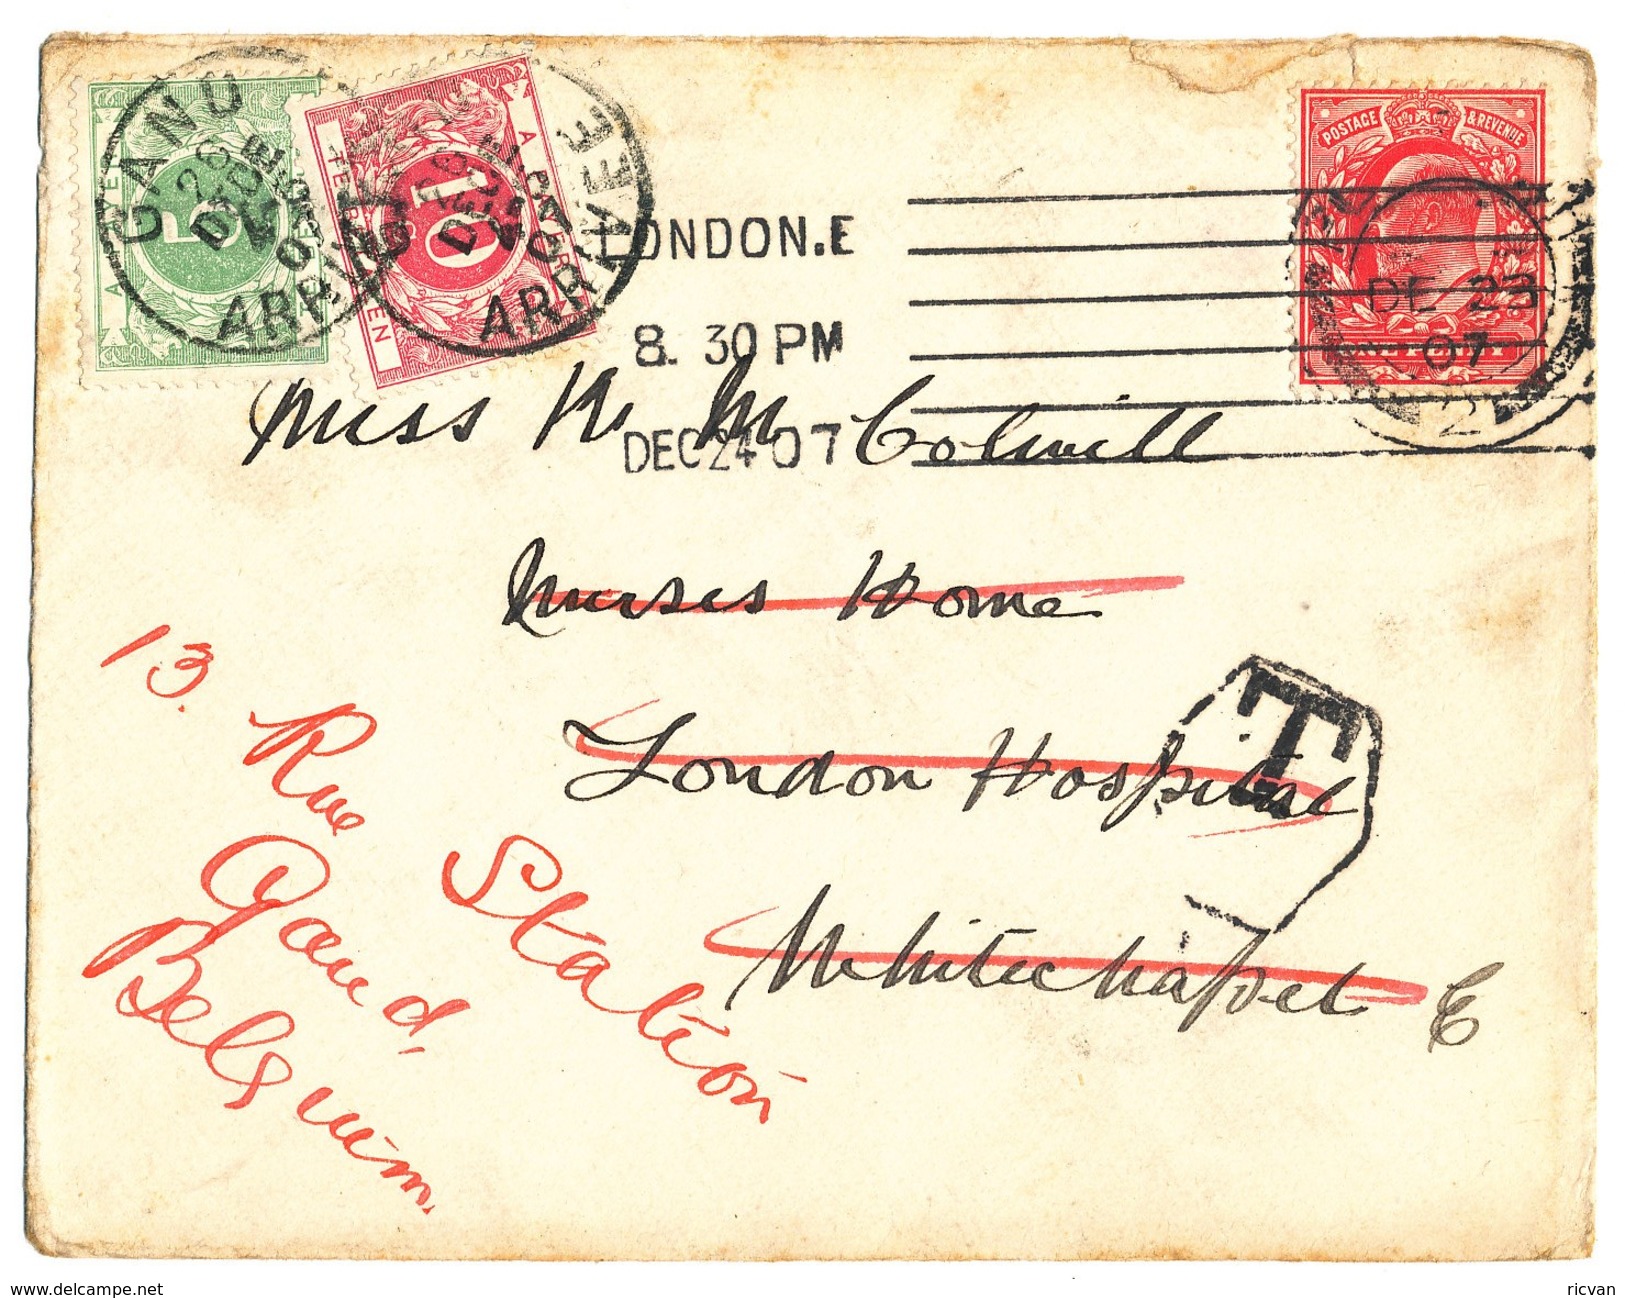 POSTAGE & REVENUE
ONE PENNY
DE 23
07
LONDON.E
8. 30 PM
DEC 24 07
GAND
26
DEC
ARRIVEE
5
10
ARRIVEE
T
Miss K. M. Colwill
Nurses Home
London Hospital
Whitechapel E
13. Rue Station
Gand,
Belgium
delcampe.net
ricvan